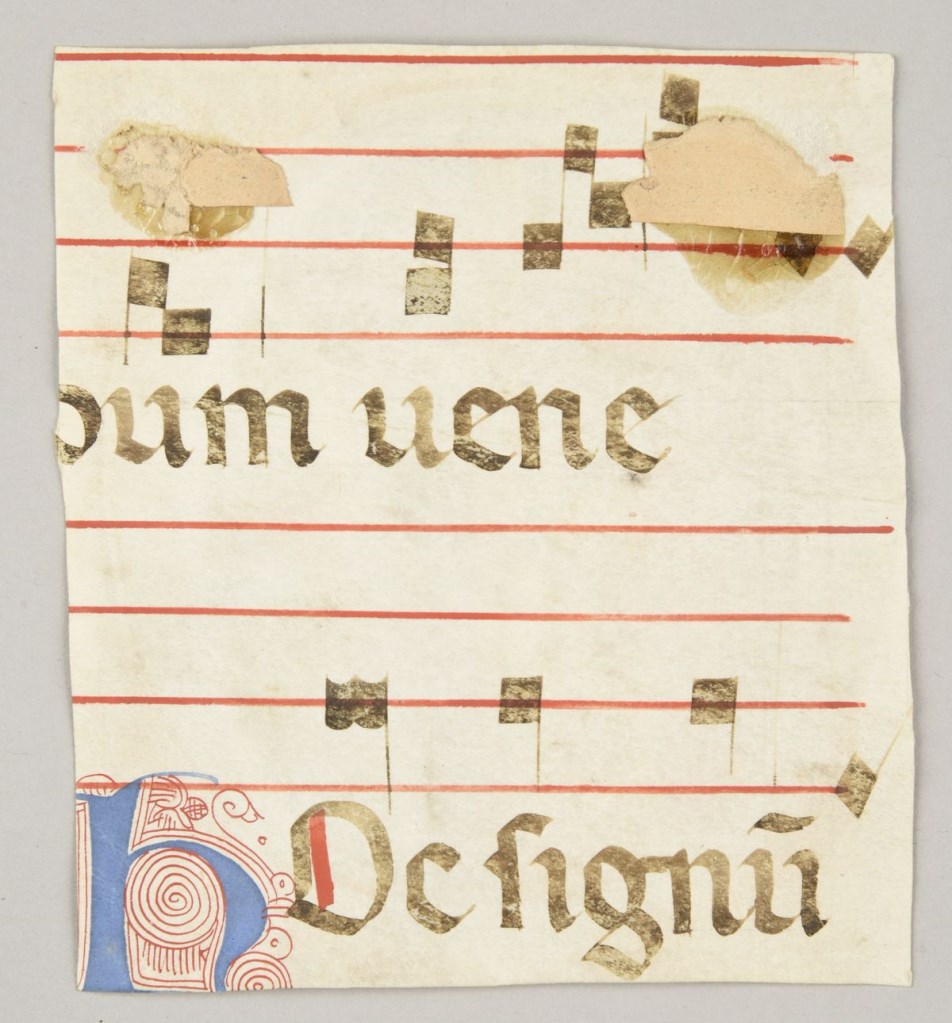 oum uene
HOc ſignū